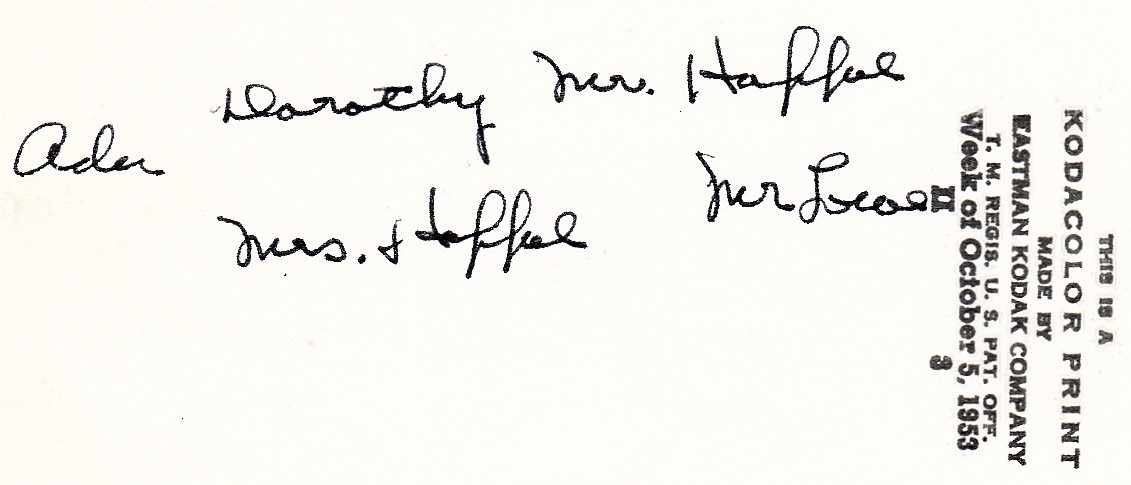 Dorothy Mr. Happel
Ada
Mrs. Happel
Mr
THIS IS A
KODACOLOR PRINT
MADE BY
EASTMAN KODAK COMPANY
T. M. REGIS. U. S. PAT. OFF.
Week of October 5, 1953
3